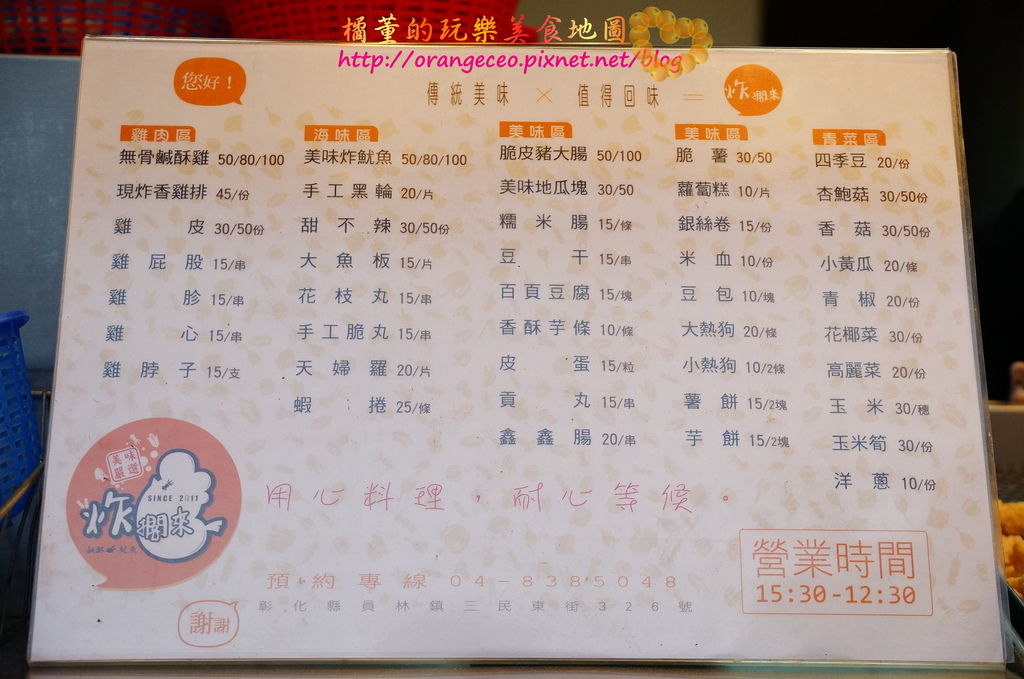 橘董的玩樂美食地圖
http://orangeceo.pixnet.net/blog
您好！
傳統美味 × 值得回味 = 炸摑來
雞肉區
無骨鹹酥雞 50/80/100
現炸香雞排 45/份
雞皮 30/50份
雞屁股 15/串
雞胗 15/串
雞心 15/串
雞脖子 15/支
海味區
美味炸魷魚 50/80/100
手工黑輪 20/片
甜不辣 30/50份
大魚板 15/片
花枝丸 15/串
手工脆丸 15/串
天婦羅 20/片
蝦捲 25/條
美味區
脆皮豬大腸 50/100
美味地瓜塊 30/50
糯米腸 15/條
豆干 15/串
百頁豆腐 15/塊
香酥芋條 10/條
皮蛋 15/粒
貢丸 15/串
鑫鑫腸 20/串
美味區
脆薯 30/50
蘿蔔糕 10/片
銀絲卷 15/份
米血 10/份
豆包 10/塊
大熱狗 20/條
小熱狗 10/2條
薯餅 15/2塊
芋餅 15/2塊
青菜區
四季豆 20/份
杏鮑菇 30/50份
香菇 30/50份
小黃瓜 20/條
青椒 20/份
花椰菜 30/份
高麗菜 20/份
玉米 30/穗
玉米筍 30/份
洋蔥 10/份
美味嚴選
SINCE 2011
炸摑來
用心料理，耐心等候。
預約專線 04-8385048
彰化縣員林鎮三民東街326號
營業時間
15:30-12:30
謝謝